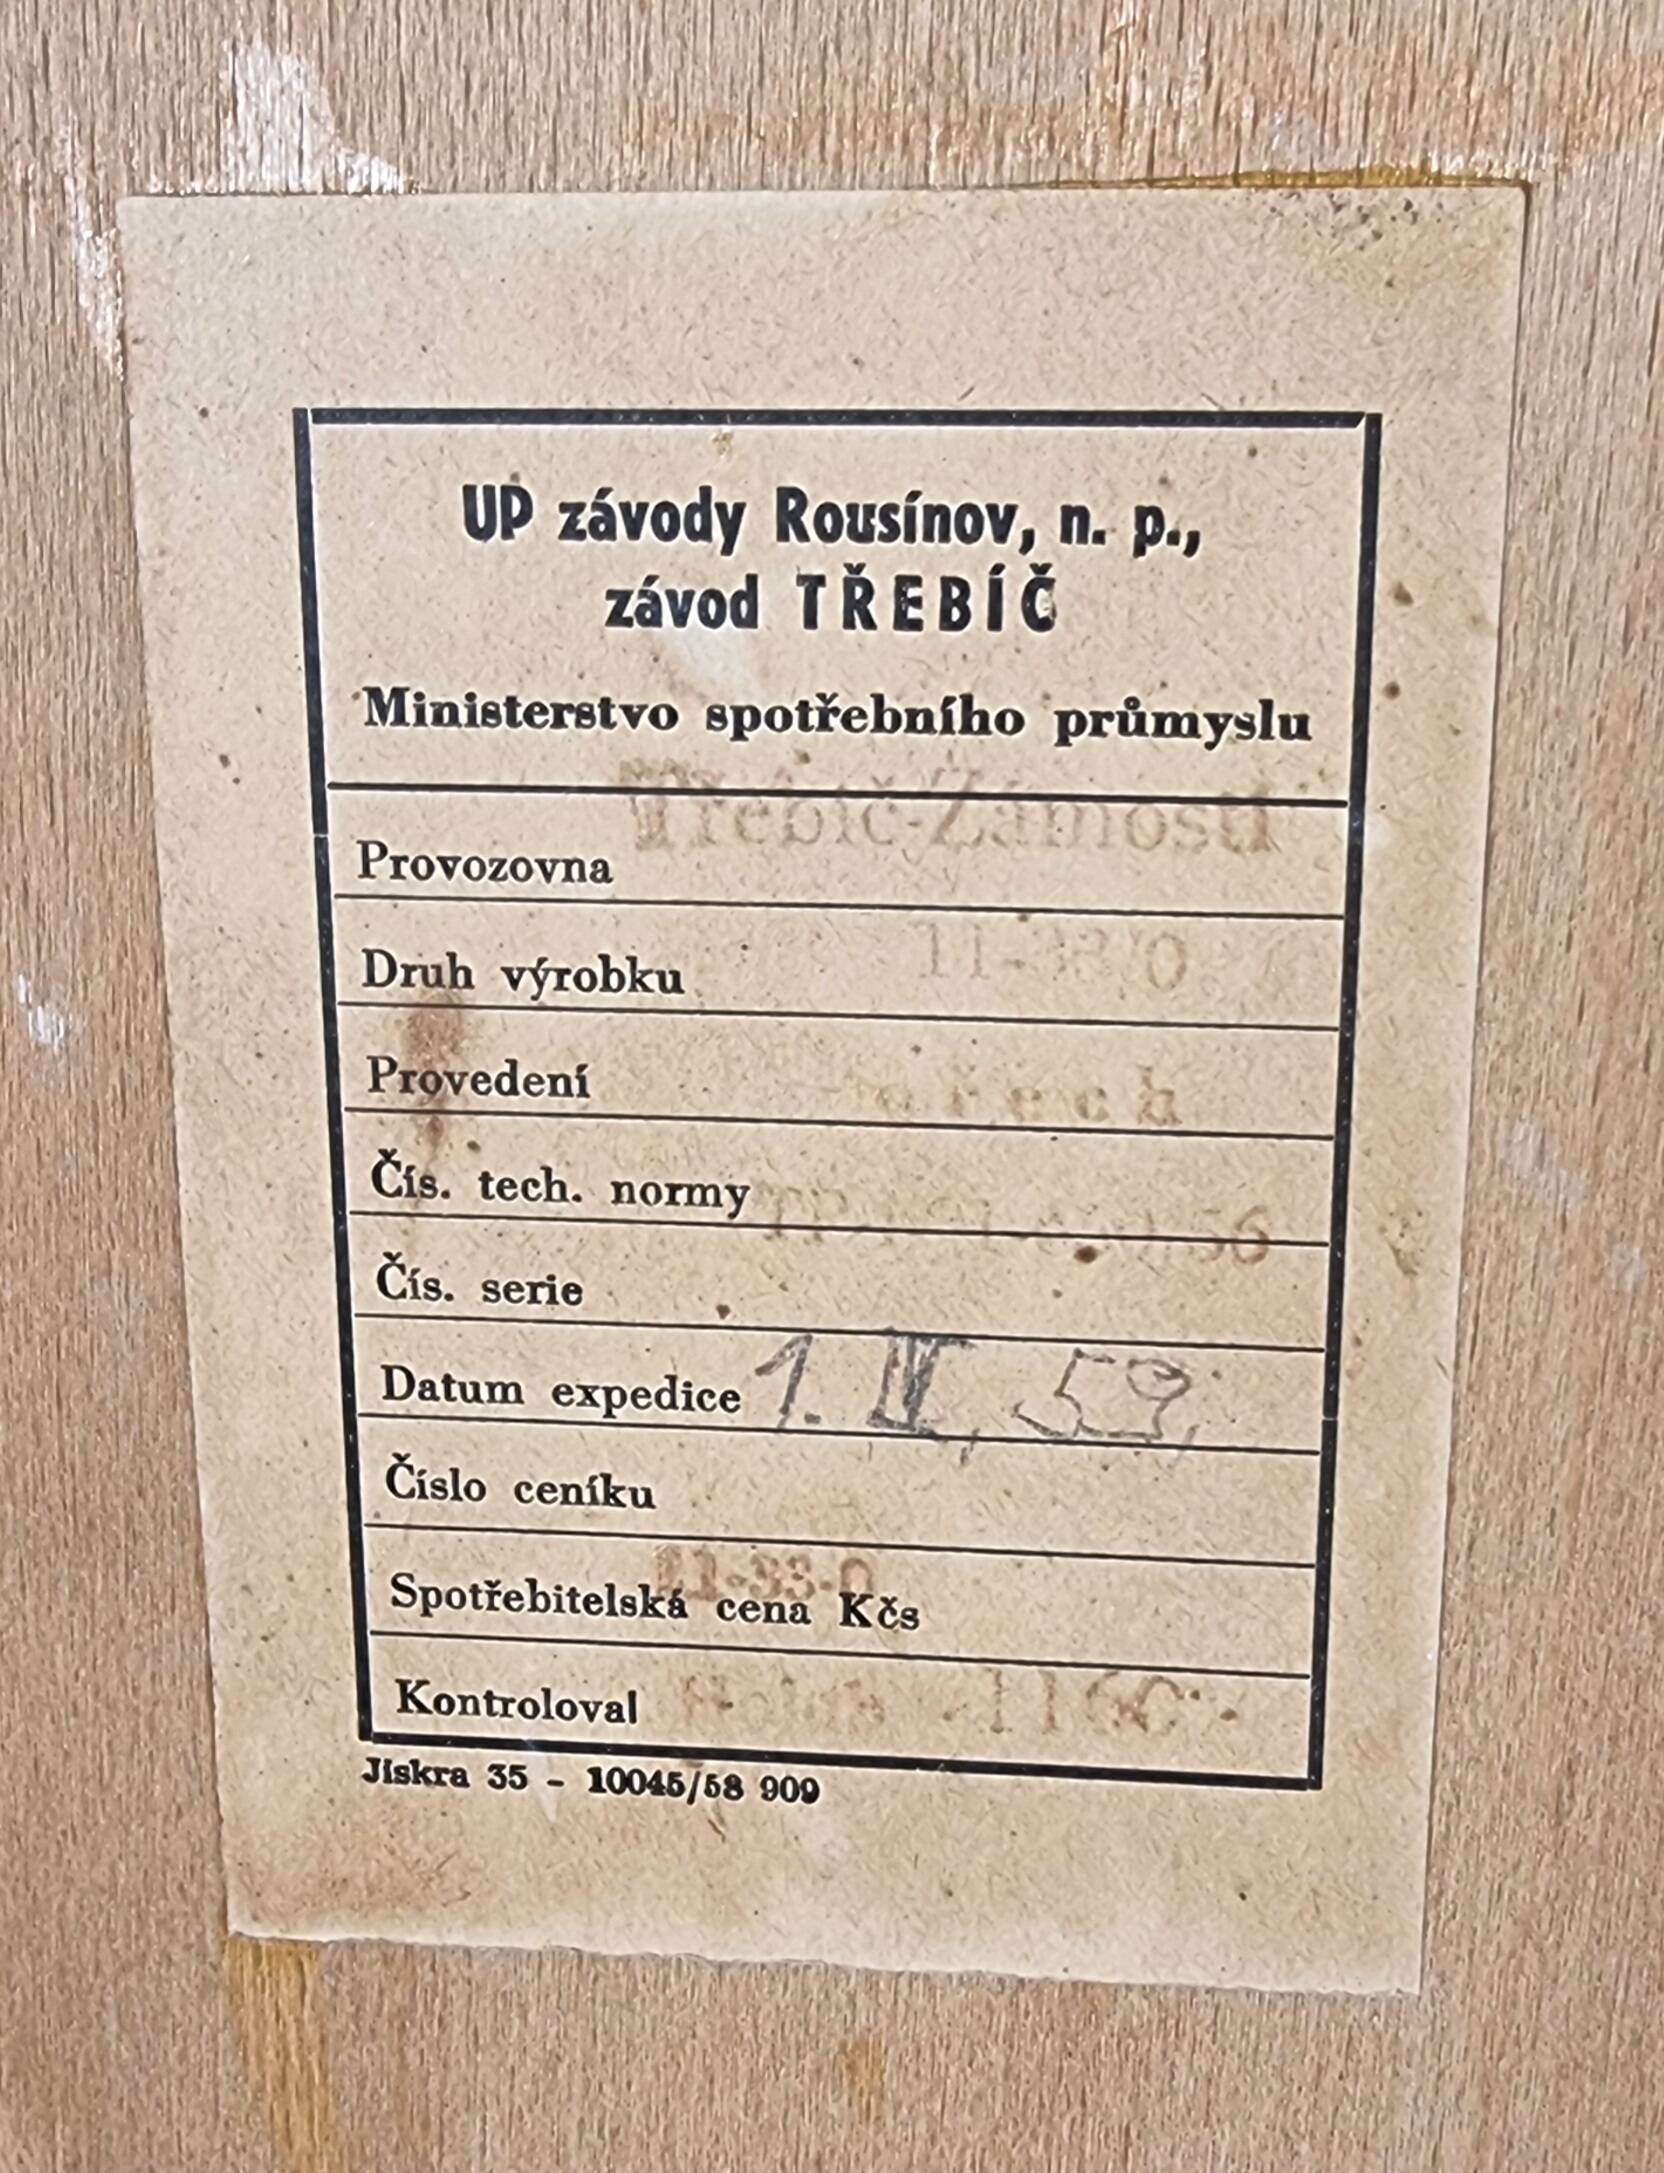 UP závody Rousínov, n. p.,
závod TŘEBÍČ
Ministerstvo spotřebního průmyslu
Třebíč-Zámostí
Provozovna
Druh výrobku
Provedení ořech
Čís. tech. normy 56
Čís. serie
Datum expedice 1. IV, 59,
Číslo ceníku
11-33-0
Spotřebitelská cena Kčs
Kontroloval
Jiskra 35 - 10045/58 909